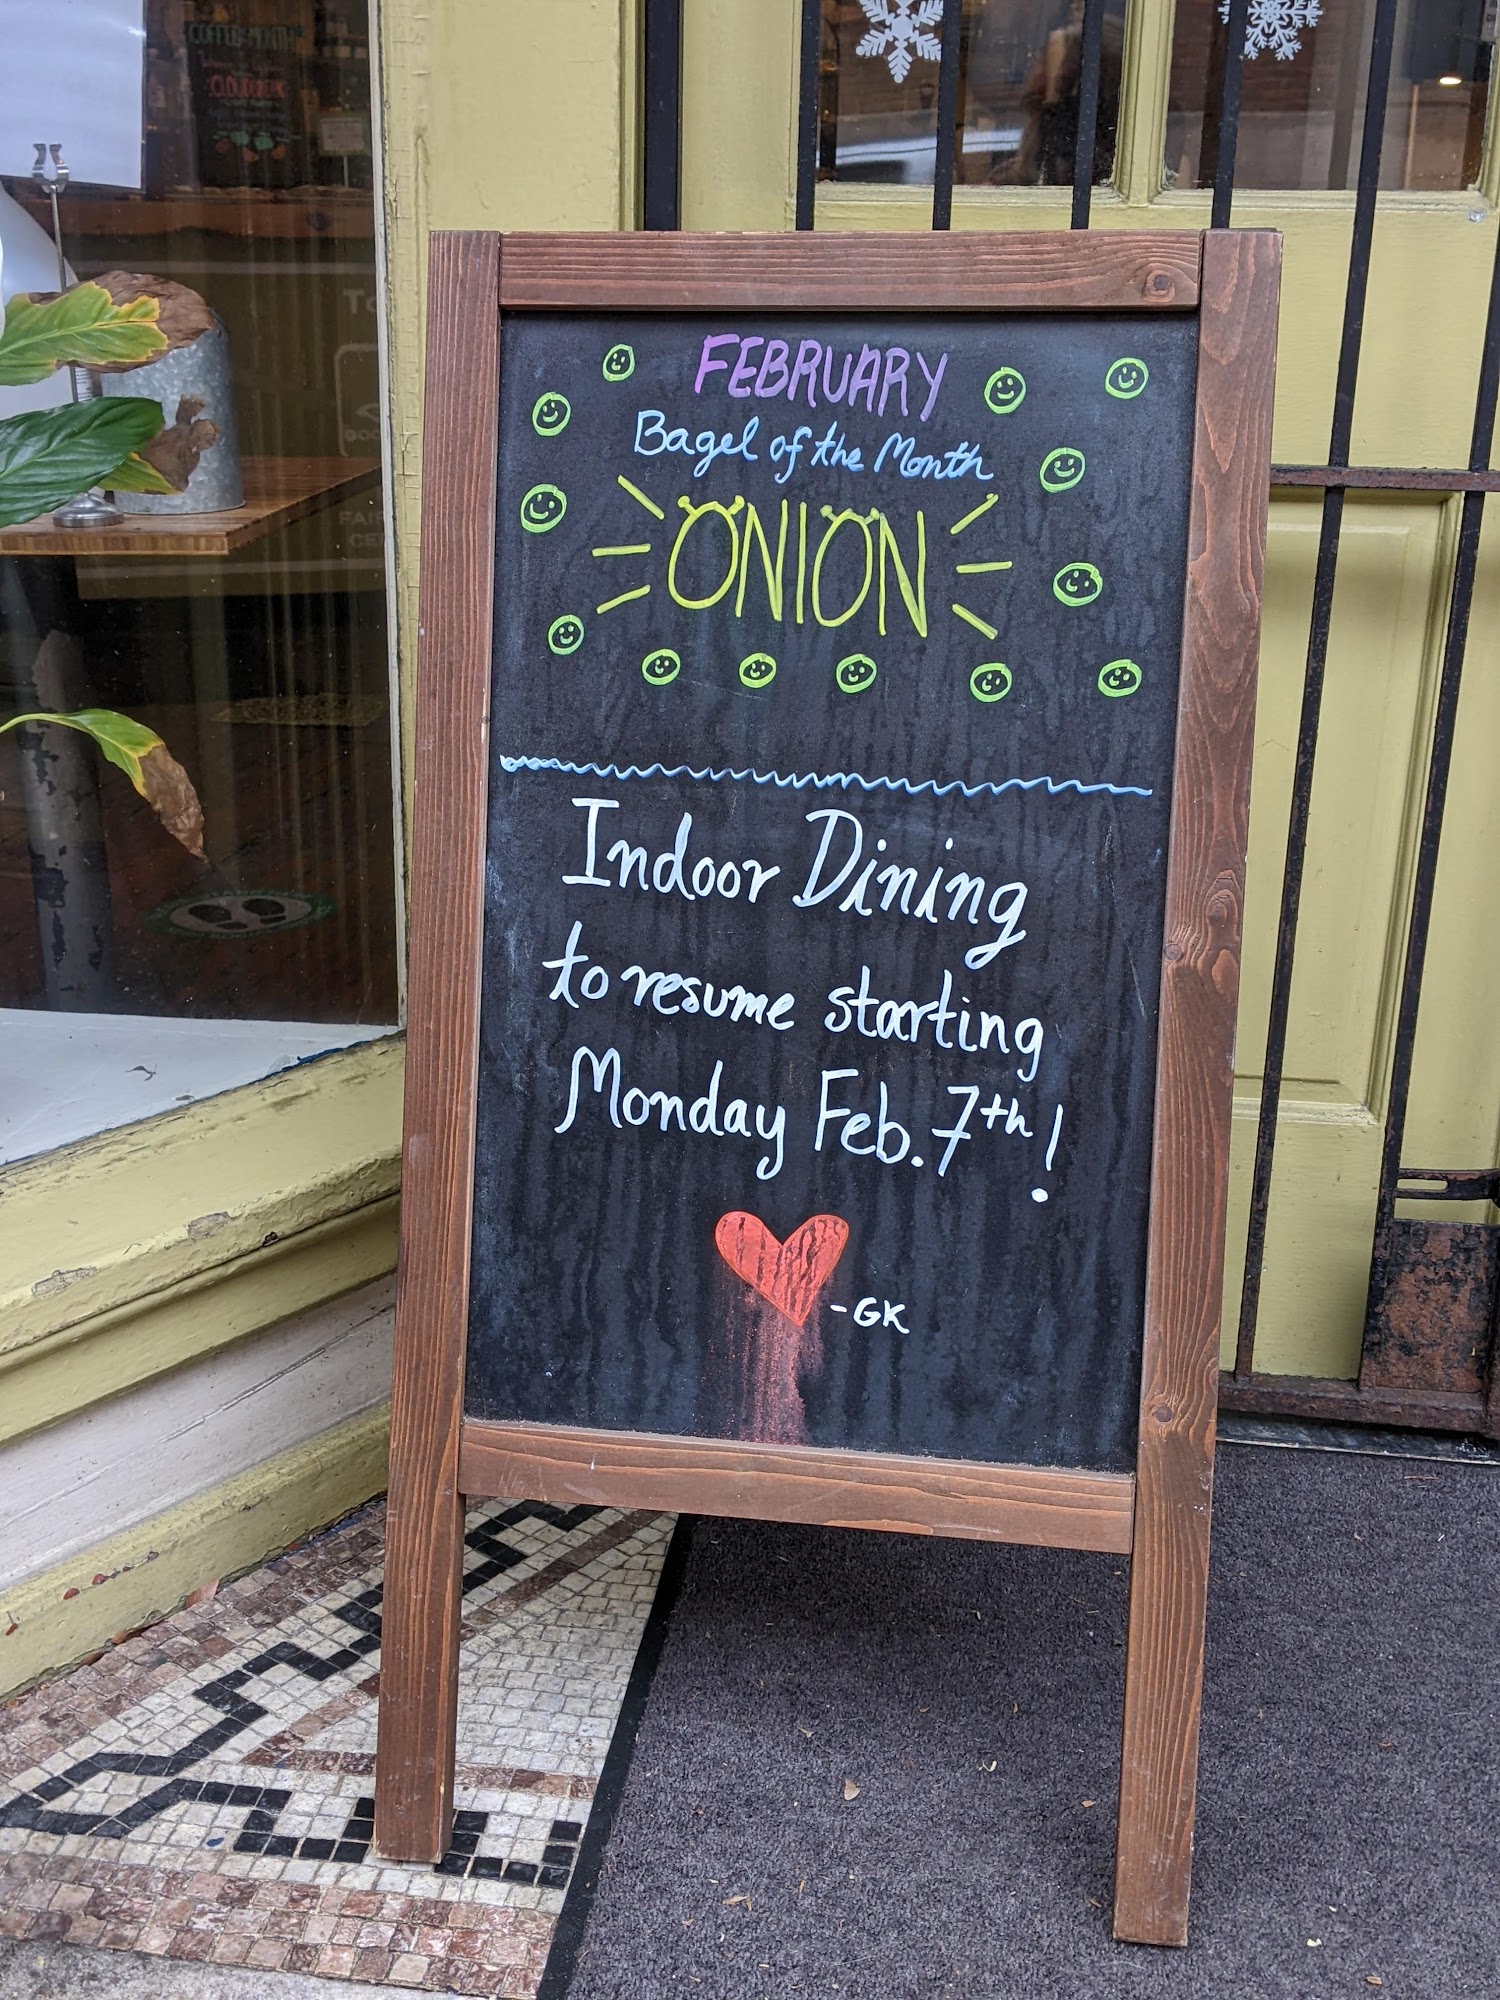 FEBRUARY
Bagel of the Month
ONION
Indoor Dining
to resume starting
Monday Feb. 7th!
-GK